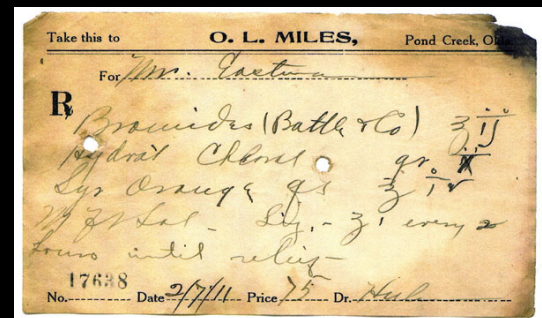 Take this to O. L. MILES, Pond Creek, Okla.
For Mr.
R
Bromides (Battle & Co) ʒ ij
Hydrat Chloral gr X
Syr Orange qs ʒ iv
M Ft Sol - Sig. - ʒ i every 2
hours until relief
17638
No. Date 2/7/11 Price 75 Dr.